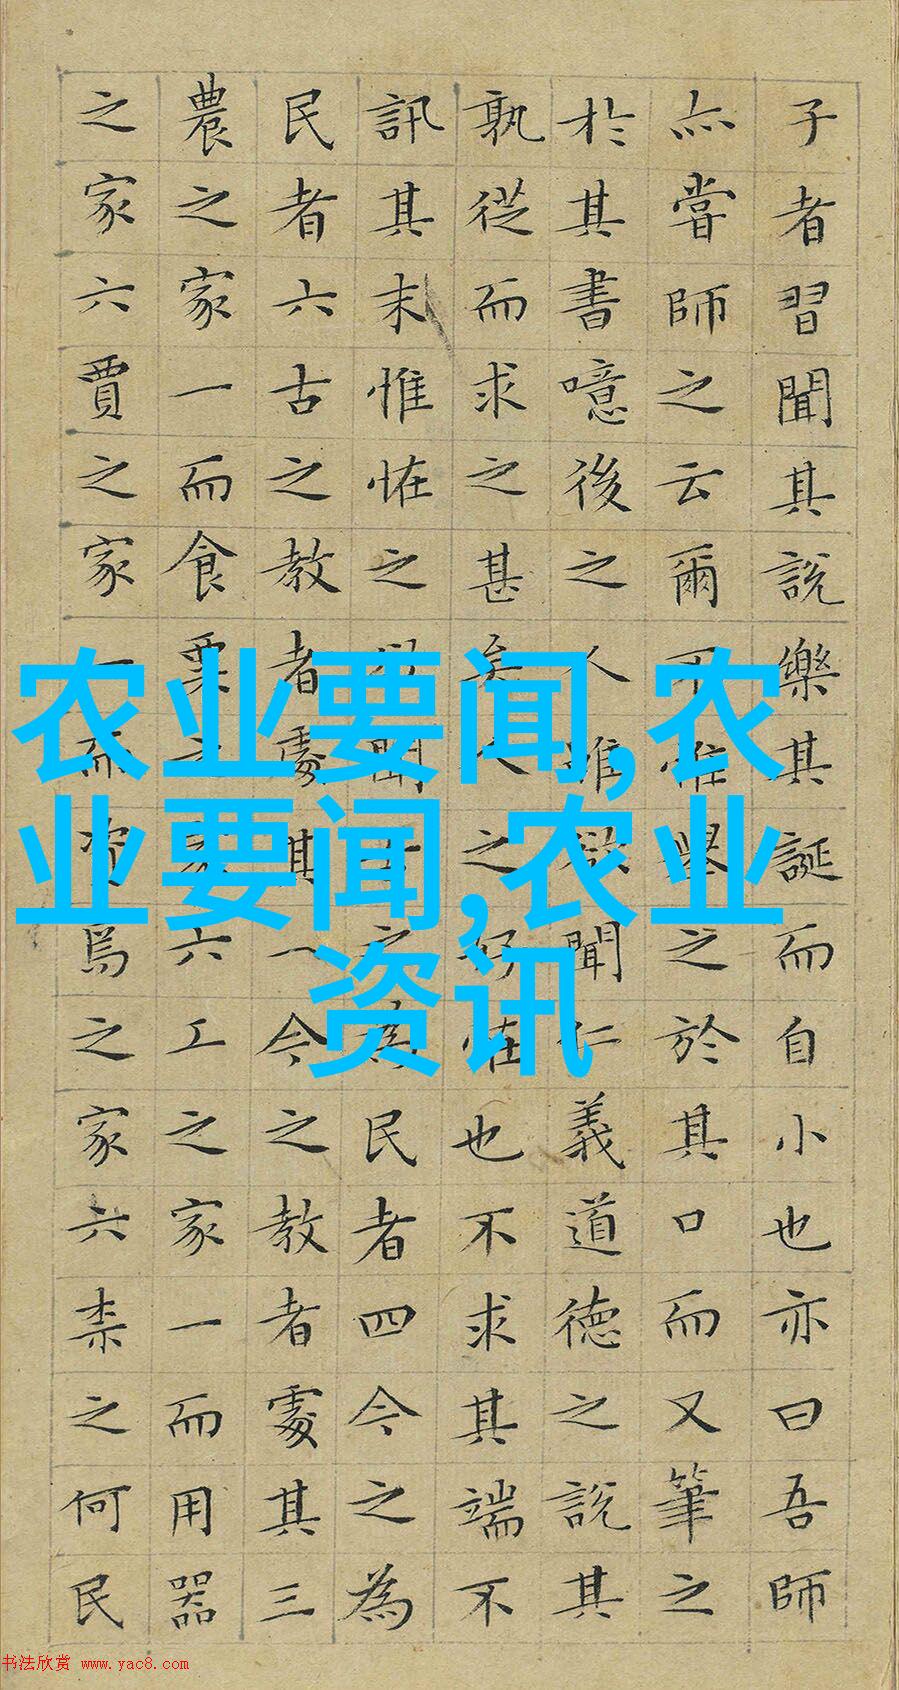 子者習聞其說樂其誕而自小也亦曰吾師
亦嘗師之云爾不惟舉之於其口而又筆之
於其書噫後之人雖欲聞仁義道德之說其
孰從而求之甚矣人之好怪也不求其端不
訊其末惟怪之聞之為民者四今之為
民者六古之教者處其一今之教者處其三
農之家一而食粟之家六工之家一而用器
之家六賈之家一而資焉之家六柰之何民
农业要闻,农
业要闻,农业
资讯
书法欣赏 www.yac8.com